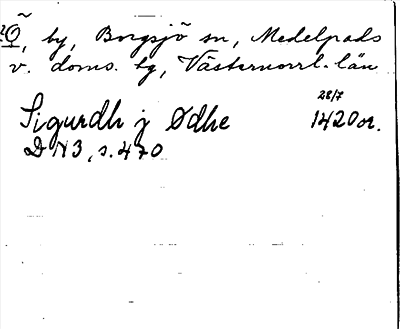 Ö, by, Borgsjö sn, Medelpads
v. doms. tg, Västernorrl. län
28/7
Sigurdh j Ødhe 1420 or.
DN3, s. 470